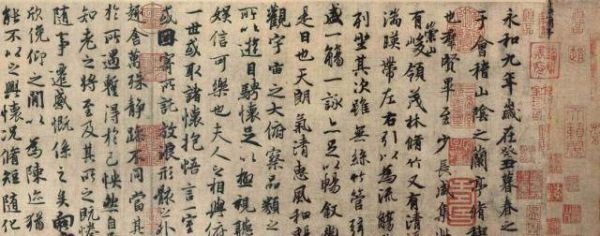 永和九年歲在癸丑暮春之
于會稽山陰之蘭亭脩稧
也羣賢畢至少長咸集此
有崇山峻領茂林脩竹又有清流
湍暎帶左右引以為流觴
列坐其次雖無絲竹管弦
盛一觴一詠亦足以暢敘幽
是日也天朗氣清惠風和暢
觀宇宙之大俯察品類之
所以遊目騁懷足以極視聽
娛信可樂也夫人之相與俯
一世或取諸懷抱悟言一室
或因寄所託放浪形骸之外
趣舍萬殊靜躁不同當其
於所遇蹔得於己怏然自
知老之將至及其所之既惓
隨事遷感慨係之矣向
欣俛仰之間以為陳迹猶
能不以之興懷況脩短隨化